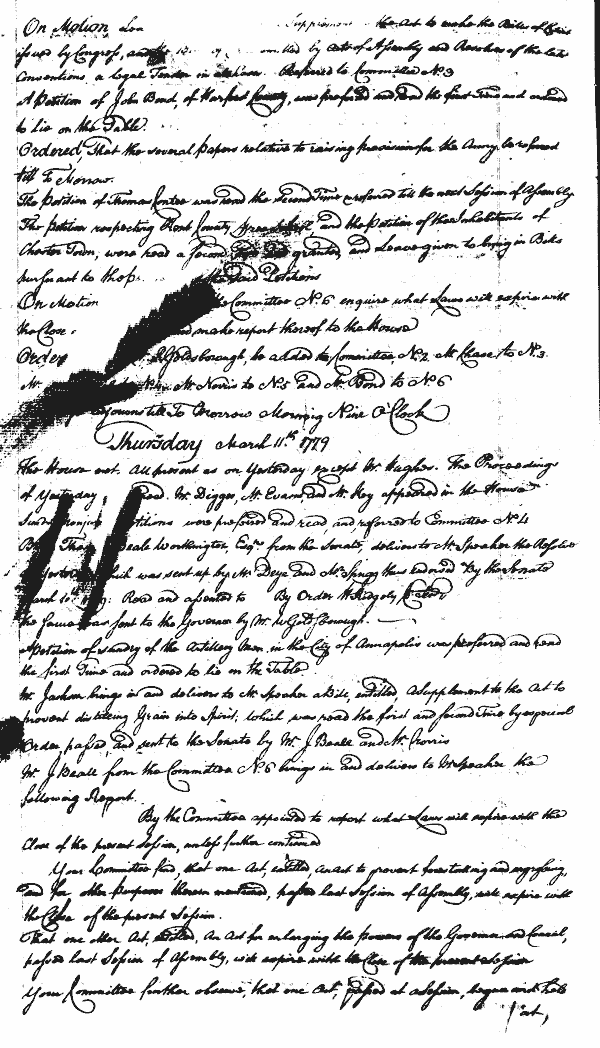 On Motion Lea Supplement the Act to make the Bills of Credit
issued by Congress, and emitted by acts of Assembly and Resolves of the late
Conventions a Legal Tender in all cases. Referred to Committee No. 3
A Petition of John Bond, of Harford County, was preferred and read the first Time and ordered
to lie on the Table.
Ordered, That the several papers relative to raising provision for the Army be referred
till To Morrow.
The Petition of Thomas Contee was read the Second Time & referred till the next Session of Assembly
The Petition respecting Kent County, and the Petition of the Inhabitants of
Chester Town, were read a second and granted, and Leave given to bring in Bills
pursuant to the said Petitions
On Motion the Committee No. 6 enquire what Laws will expire with
the Close and make report thereof to the House
Order Goldsborough, be added to Committee No. 2. Mr. Chase to No. 3.
Mr. No. 4. Mr. Norris to No. 5 and Mr. Bond to No. 6
adjourns till To Morrow Morning Nine O'Clock
Thursday March 11.th 1779
The House met. All present as on Yesterday except Mr. Hughes. The Proceedings
of Yesterday Read. Mr. Digges, Mr. Evans and Mr. Key appeared in the House
Petitions were preferred and read and referred to Committee No. 4
Beale Worthington, Esqr. from the Senate, delivers to Mr. Speaker the Resolve
which was sent up by Mr. Deye and Mr. Sprigg thus endorsed "By the Senate
March 10th Read and assented to By Order H Ridgely
the same was sent to the Governor by Mr. W Goldsborough.
A Petition of sundry of the Artillery Men, in the City of Annapolis was preferred and read
the first Time and ordered to lie on the Table
Mr. Jackson brings in and delivers to Mr. Speaker a Bill, entitled, A Supplement to the Act to
prevent distilling Grain into Spirit, which was read the first and second Time by especial
Order passed and sent to the Senate by Mr. J Beall and Mr. Norris
Mr. J Beall from the Committee No. 6 brings in and delivers to Mr. Speaker the
following Report.
By the Committee appointed to report what Laws will expire with the
Close of the present Session, unless further continued
Your Committee find, that one Act, entitled, an act to prevent forestalling and engrossing,
and for other Purposes therein mentioned, passed last Session of Assembly, will expire with
the Close of the present Session.
That one other Act, entitled, An Act for enlarging the powers of the Governor and Council,
passed last Session of Assembly, will expire with the Close of the present session
Your Committee further observe, that one Act, passed at a Session, begun and held